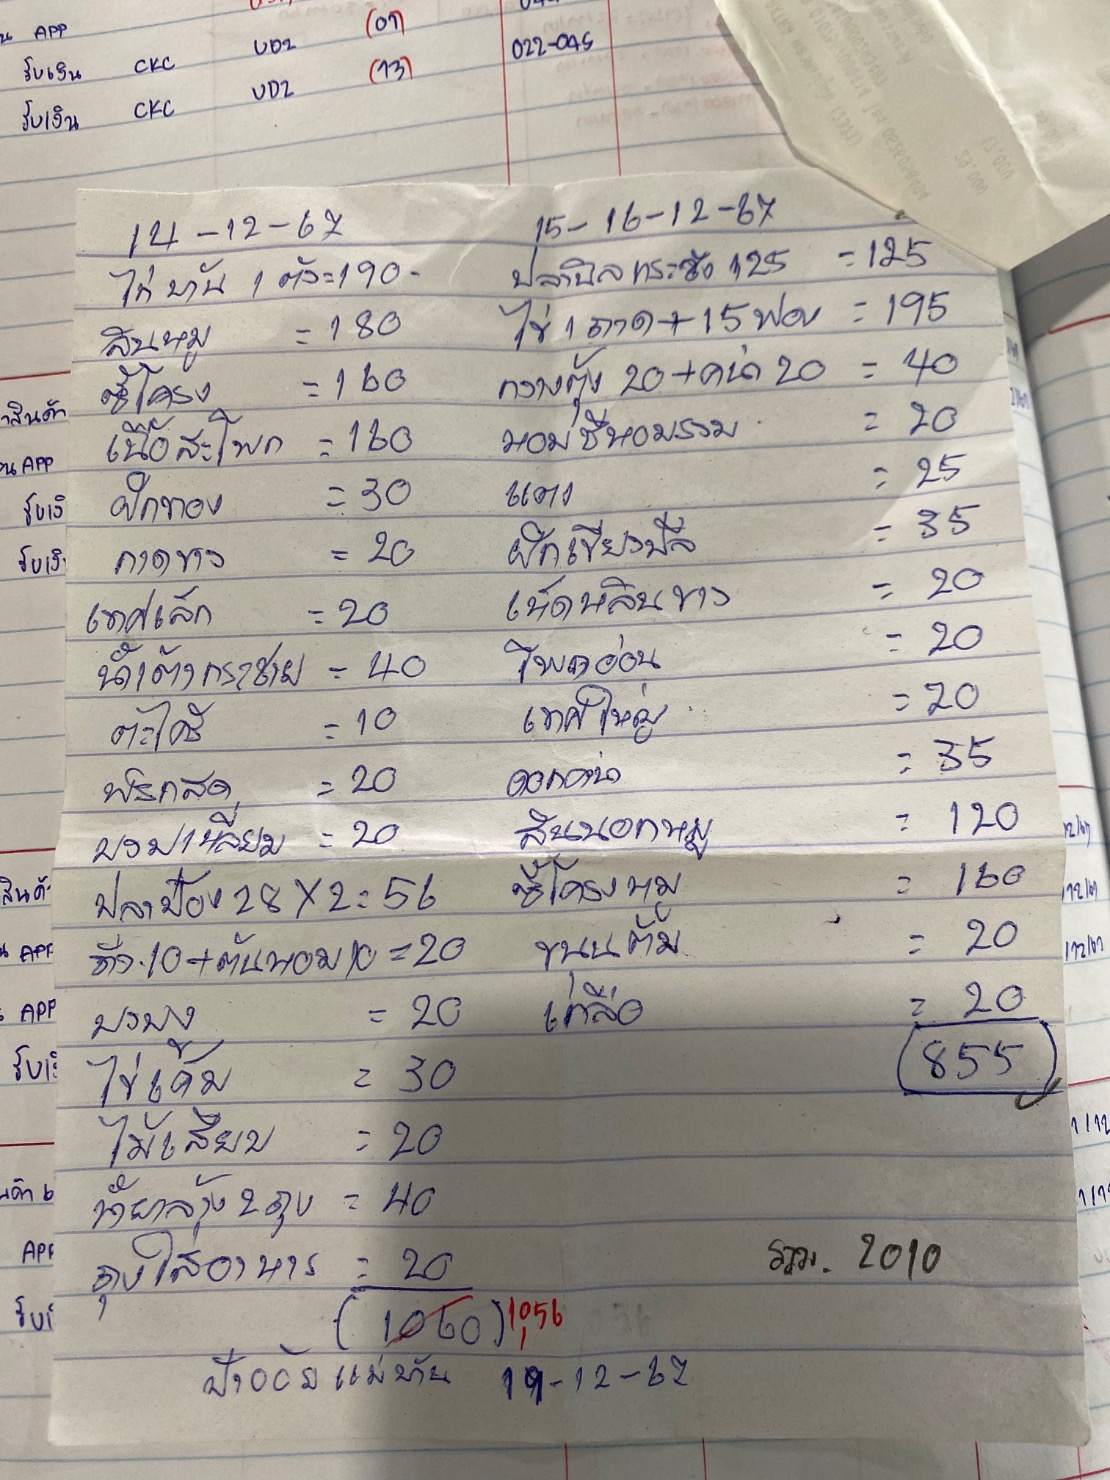 น APP
รับเงิน CKC UD2 (07)
รับเงิน CKC UD2 (13) 022-045
14-12-67
ไก่บ้าน 1 ตัว=190-
สันหมู =180
ซี่โครง =160
เนื้อสะโพก =160
ฝักทอง =30
กาดขาว =20
เทศเล็ก =20
น้ำเต้า กระชาย =40
ตะไคร้ =10
พริกสด =20
บวบเหลี่ยม =20
ปลาป๋อง 28 X 2=56
ถั่ว.10+ต้นหอม 10 =20
บวบงู =20
ไข่เค็ม =30
ไม้เสียบ =20
น้ำยาล้าง 2 ถุง =40
ถุงใส่อาหาร =20
(1060) 1056
ป้าออ๊ด แม่บ้าน 19-12-67
15-16-12-67
ปลานิลกระชัง 125 =125
ไข่ 1 ถาด+15 ฟอง =195
กวางตุ้ง 20+คน้า 20 =40
หอมชีหอมรวม =20
แตง =25
ฝักเขียวมีล =35
เห็ดหลินขาว =20
โพดอ่อน =20
เทศใหญ่ =20
ดอกคน้า =35
สันนอกหมู =120
ซี่โครงหมู =160
ขนุนต้ม =20
เกลือ =20
855
รวม. 2010